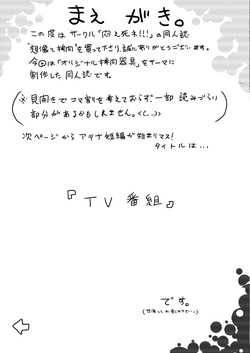 まえがき。
この度はサークル「悶え死ネ!!!」の同人誌
"想像と検肉"を買って下さり、誠にありがとうございます。
今回は「オリジナル検肉器具」をテーマに
制作した同人誌です。
(※見開きでコマ割りを考えておらず、一部 読みづらい
部分があるかもしれません。<(_ _)>)
次ページから アテナ短編が始まりマス!
タイトルは...
『TV番組』
です。